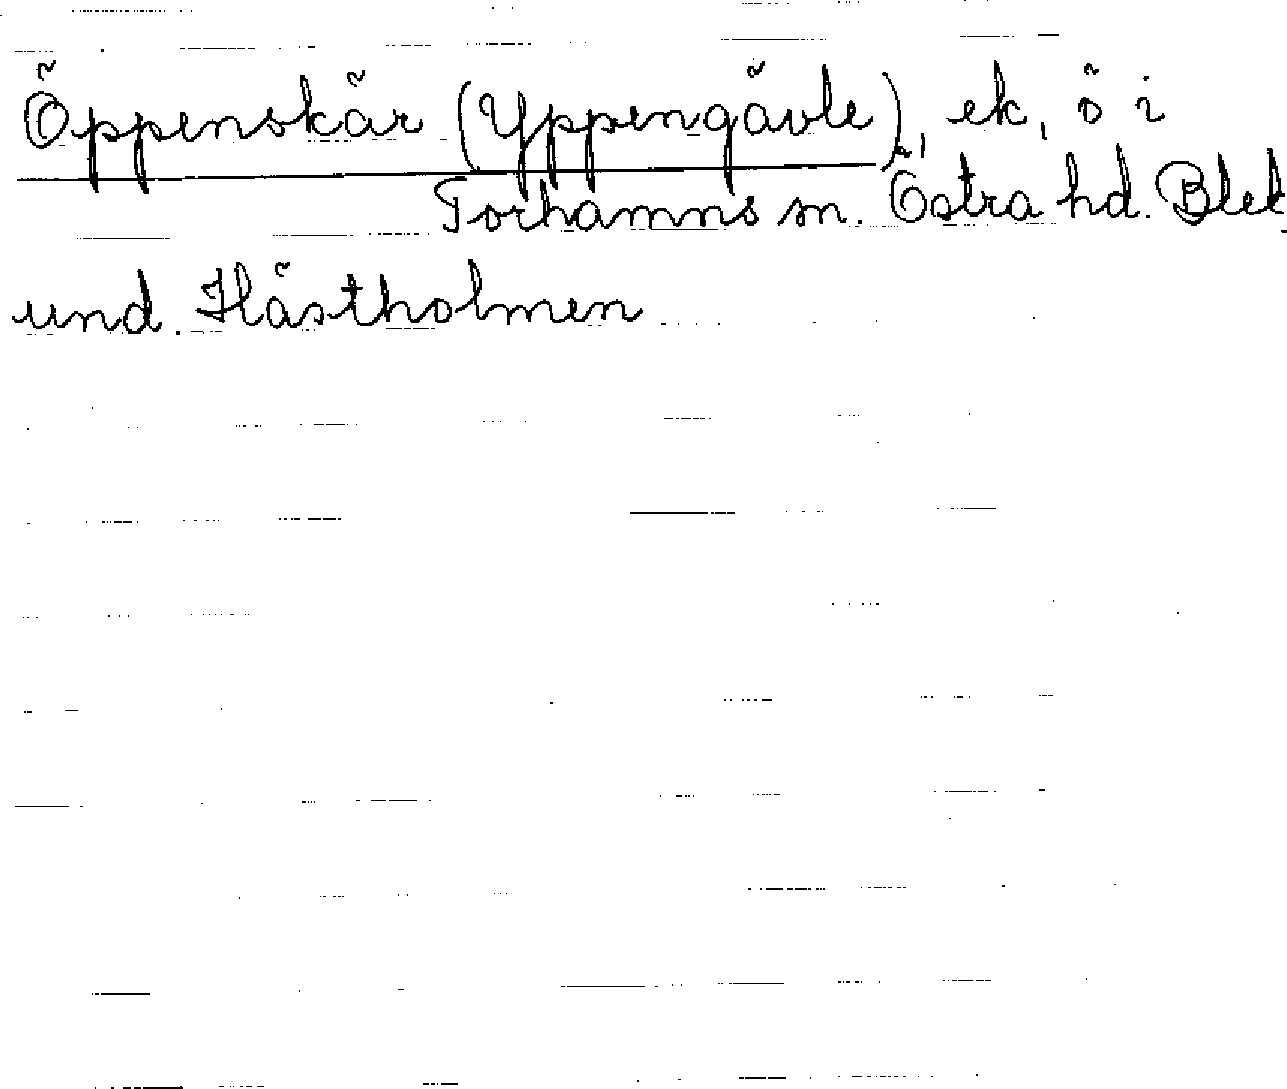 Öppenskär (Yppengävle), ek, ö i
Torhamns sn. Östra hd. Blek.
und. Hästholmen